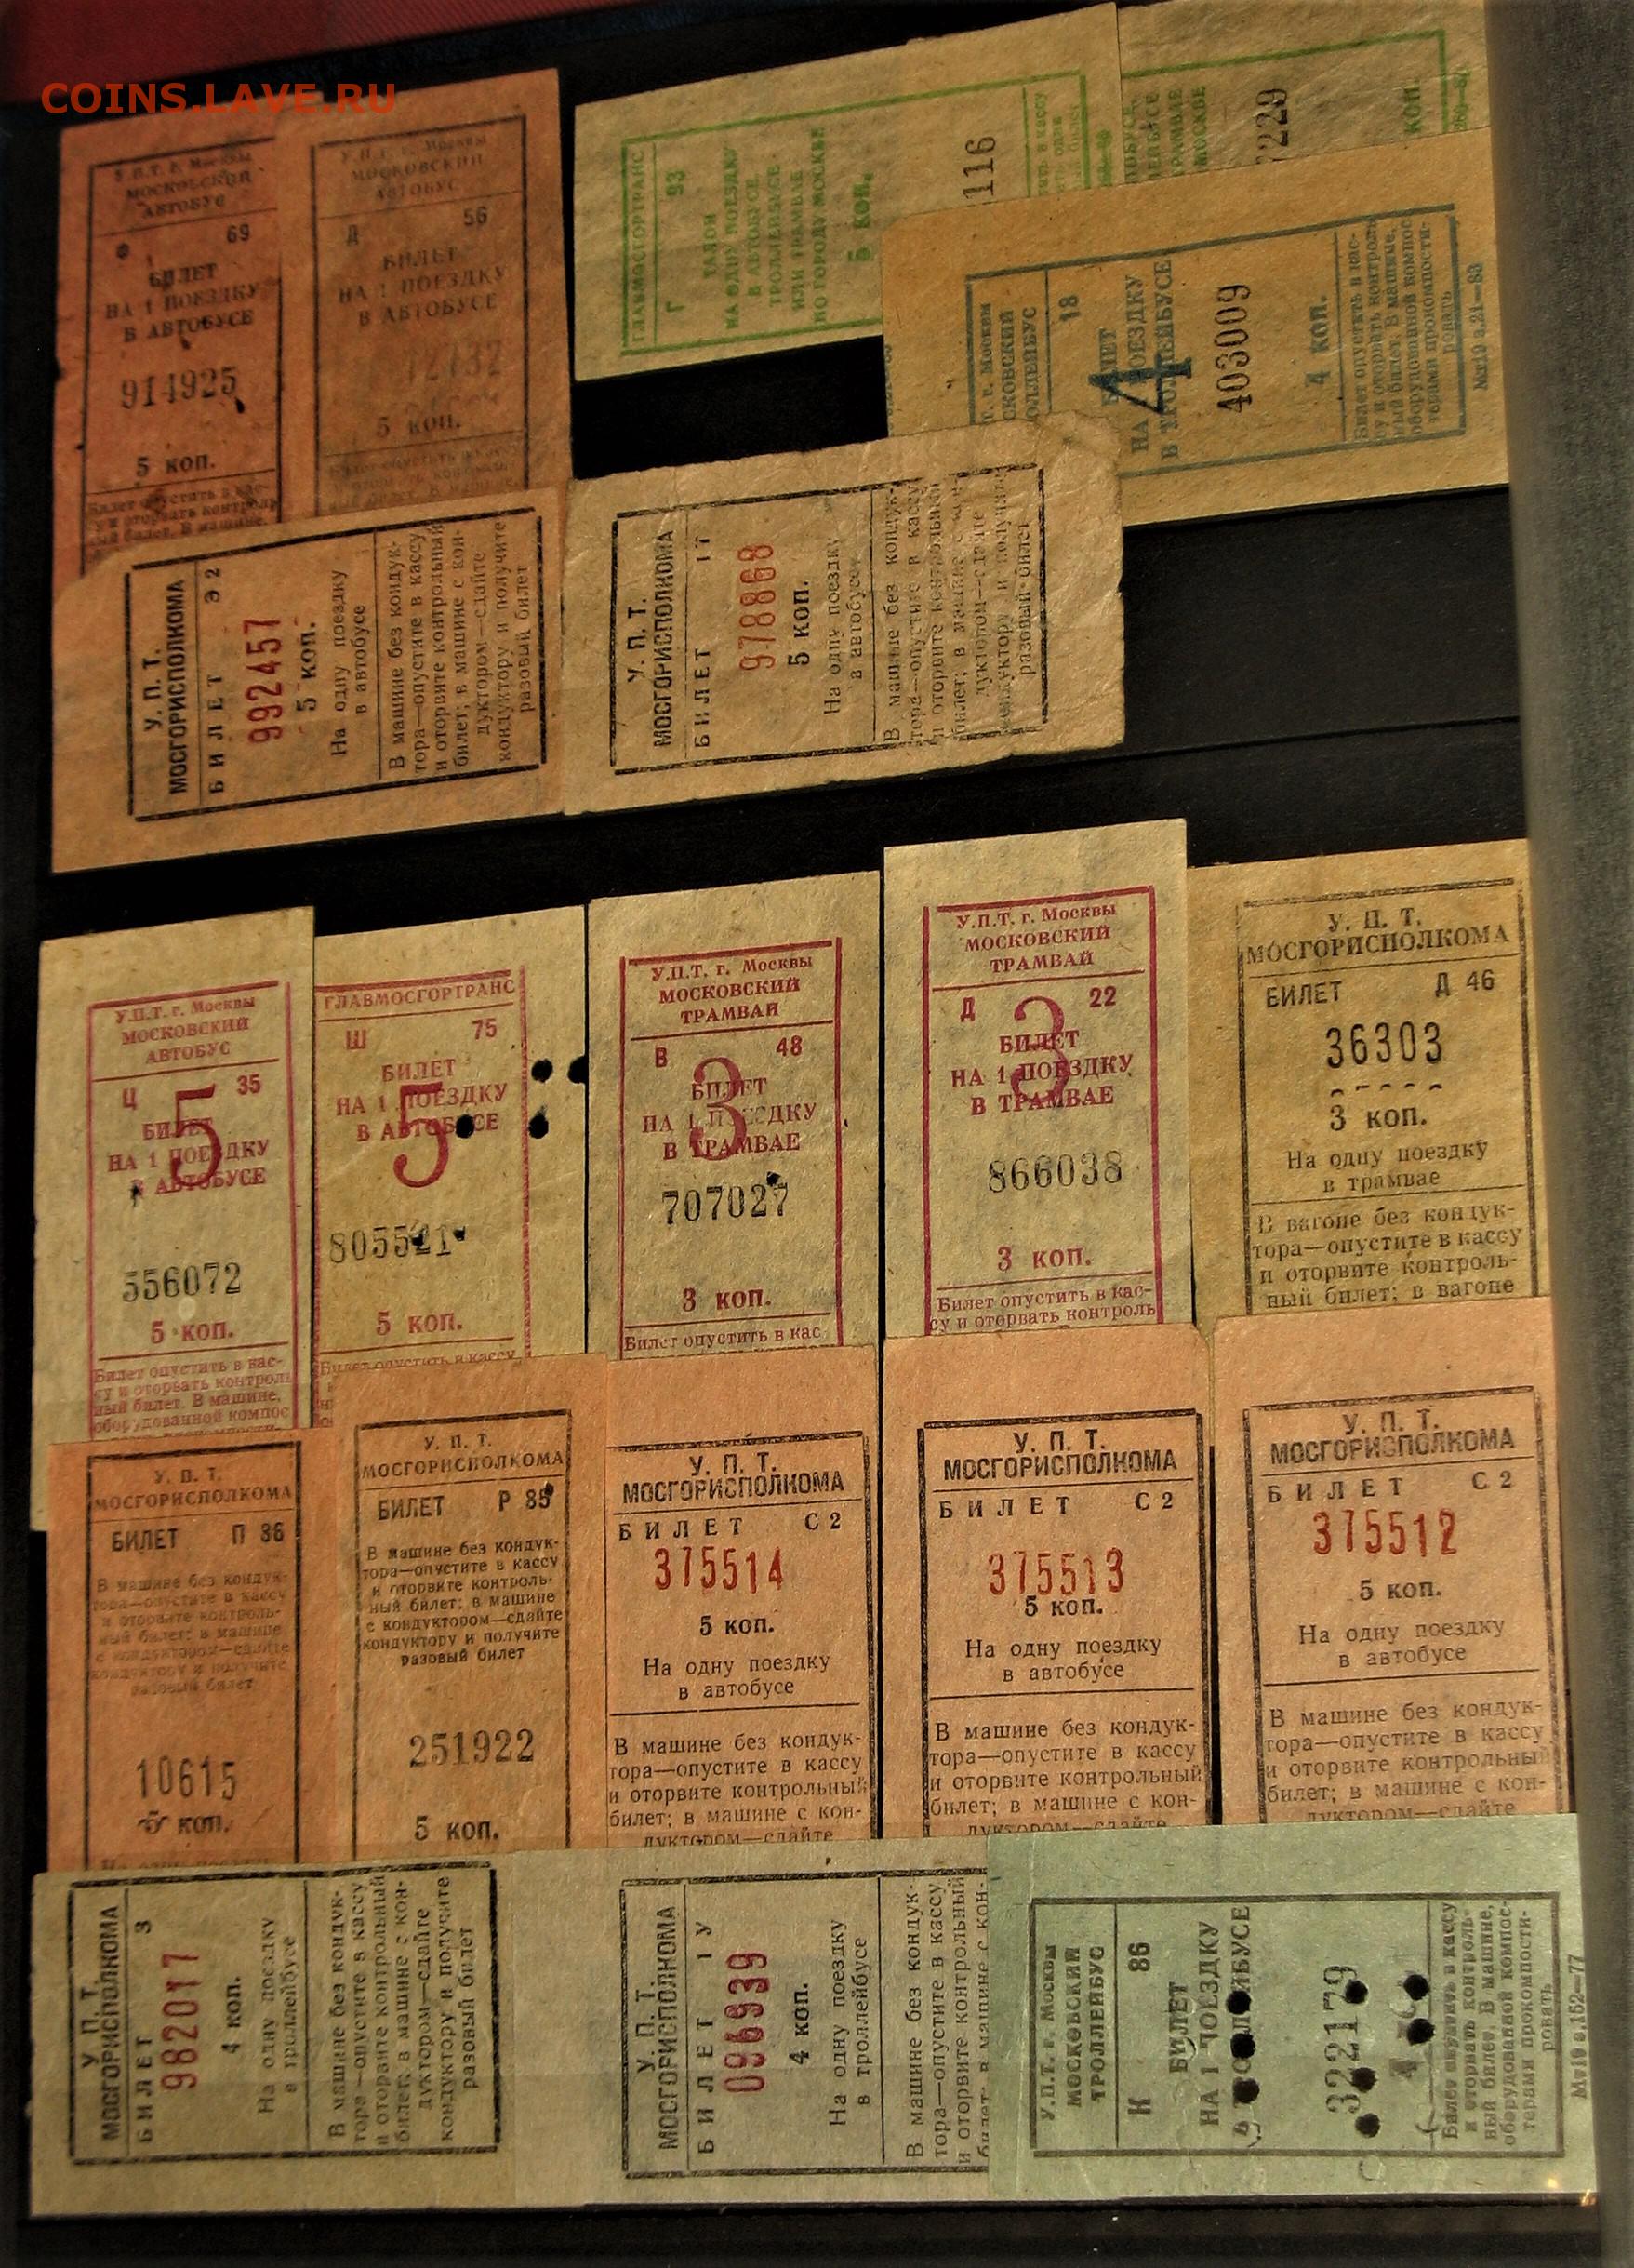 COINS.LAVE.RU
У.П.Т. г. Москвы
МОСКОВСКИЙ
АВТОБУС
Ф 69
БИЛЕТ
НА 1 ПОЕЗДКУ
В АВТОБУСЕ
914925
5 коп.
Билет опустить в кас-
су и оторвать контроль
ный билет. В машине,
У.П.Т. г. Москвы
МОСКОВСКИЙ
АВТОБУС
Д 56
БИЛЕТ
НА 1 ПОЕЗДКУ
В АВТОБУСЕ
72732
5 коп.
ГЛАВМОСГОРТРАНС
Г 93
ТАЛОН
НА ОДНУ ПОЕЗДКУ
В АВТОБУСЕ,
ТРОЛЛЕЙБУСЕ
ИЛИ ТРАМВАЕ
ПО ГОРОДУ МОСКВЕ
5 коп.
116
7229
КОП.
т. г. Москвы
СКОВСКИЙ
ОЛЛЕЙБУС
18
БИЛЕТ
НА 1 ПОЕЗДКУ
В ТРОЛЛЕЙБУСЕ
4
403009
4 коп.
Билет опустить в кас-
су и оторвать контроль
ный билет. В машине,
оборудованной компос
терами прокомпости-
ровать
М19 з.21—83
У. П. Т.
МОСГОРИСПОЛКОМА
БИЛЕТ Э2
992457
5 коп.
На одну поездку
в автобусе
В машине без кондук-
тора—опустите в кассу
и оторвите контрольный
билет; в машине с кон-
дуктором—сдайте
кондуктору и получите
разовый билет
У. П. Т.
МОСГОРИСПОЛКОМА
БИЛЕТ 1Т
978868
5 коп.
На одну поездку
в автобусе
В машине без кондук-
тора—опустите в кассу
и оторвите контрольный
билет; в машине с кон-
дуктором—сдайте
кондуктору и получите
разовый билет
У.П.Т. г. Москвы
МОСКОВСКИЙ
АВТОБУС
Ц 35
5
БИЛЕТ
НА 1 ПОЕЗДКУ
В АВТОБУСЕ
556072
5 коп.
Билет опустить в кас-
су и оторвать контроль
ный билет. В машине,
оборудованной компос
ГЛАВМОСГОРТРАНС
Ш 75
5
БИЛЕТ
НА 1 ПОЕЗДКУ
В АВТОБУСЕ
805521
5 коп.
Билет опустить в кассу
У.П.Т. г. Москвы
МОСКОВСКИЙ
ТРАМВАЙ
В 48
3
БИЛЕТ
НА 1 ПОЕЗДКУ
В ТРАМВАЕ
707027
3 коп.
Билет опустить в кас
У.П.Т. г. Москвы
МОСКОВСКИЙ
ТРАМВАЙ
Д 22
3
БИЛЕТ
НА 1 ПОЕЗДКУ
В ТРАМВАЕ
866038
3 коп.
Билет опустить в кас-
су и оторвать контроль
У. П. Т.
МОСГОРИСПОЛКОМА
БИЛЕТ Д 46
36303
3 коп.
На одну поездку
в трамвае
В вагоне без кондук-
тора—опустите в кассу
и оторвите контроль-
ный билет; в вагоне
У. П. Т.
МОСГОРИСПОЛКОМА
БИЛЕТ П 86
В машине без кондук-
тора—опустите в кассу
и оторвите контроль-
ный билет; в машине
с кондуктором—сдайте
кондуктору и получите
разовый билет
10615
5 коп.
У. П. Т.
МОСГОРИСПОЛКОМА
БИЛЕТ Р 85
В машине без кондук-
тора—опустите в кассу
и оторвите контроль-
ный билет; в машине
с кондуктором—сдайте
кондуктору и получите
разовый билет
251922
5 коп.
У. П. Т.
МОСГОРИСПОЛКОМА
БИЛЕТ С2
375514
5 коп.
На одну поездку
в автобусе
В машине без кондук-
тора—опустите в кассу
и оторвите контрольный
билет; в машине с кон-
дуктором—сдайте
У. П. Т.
МОСГОРИСПОЛКОМА
БИЛЕТ С2
375513
5 коп.
На одну поездку
в автобусе
В машине без кондук-
тора—опустите в кассу
и оторвите контрольный
билет; в машине с кон-
дуктором—сдайте
У. П. Т.
МОСГОРИСПОЛКОМА
БИЛЕТ С2
375512
5 коп.
На одну поездку
в автобусе
В машине без кондук-
тора—опустите в кассу
и оторвите контрольный
билет; в машине с кон-
дуктором—сдайте
У. П. Т.
МОСГОРИСПОЛКОМА
БИЛЕТ З
982017
4 коп.
На одну поездку
в троллейбусе
В машине без кондук-
тора—опустите в кассу
и оторвите контрольный
билет; в машине с кон-
дуктором—сдайте
кондуктору и получите
разовый билет
У. П. Т.
МОСГОРИСПОЛКОМА
БИЛЕТ 1У
096939
4 коп.
На одну поездку
в троллейбусе
В машине без кондук-
тора—опустите в кассу
и оторвите контрольный
билет; в машине с кон-
У.П.Т. г. Москвы
МОСКОВСКИЙ
ТРОЛЛЕЙБУС
К 86
БИЛЕТ
НА 1 ПОЕЗДКУ
В ТРОЛЛЕЙБУСЕ
322179
4
Билет опустить в кассу
и оторвать контроль-
ный билет. В машине,
оборудованной компос-
терами прокомпости-
ровать
М19 з.152—77